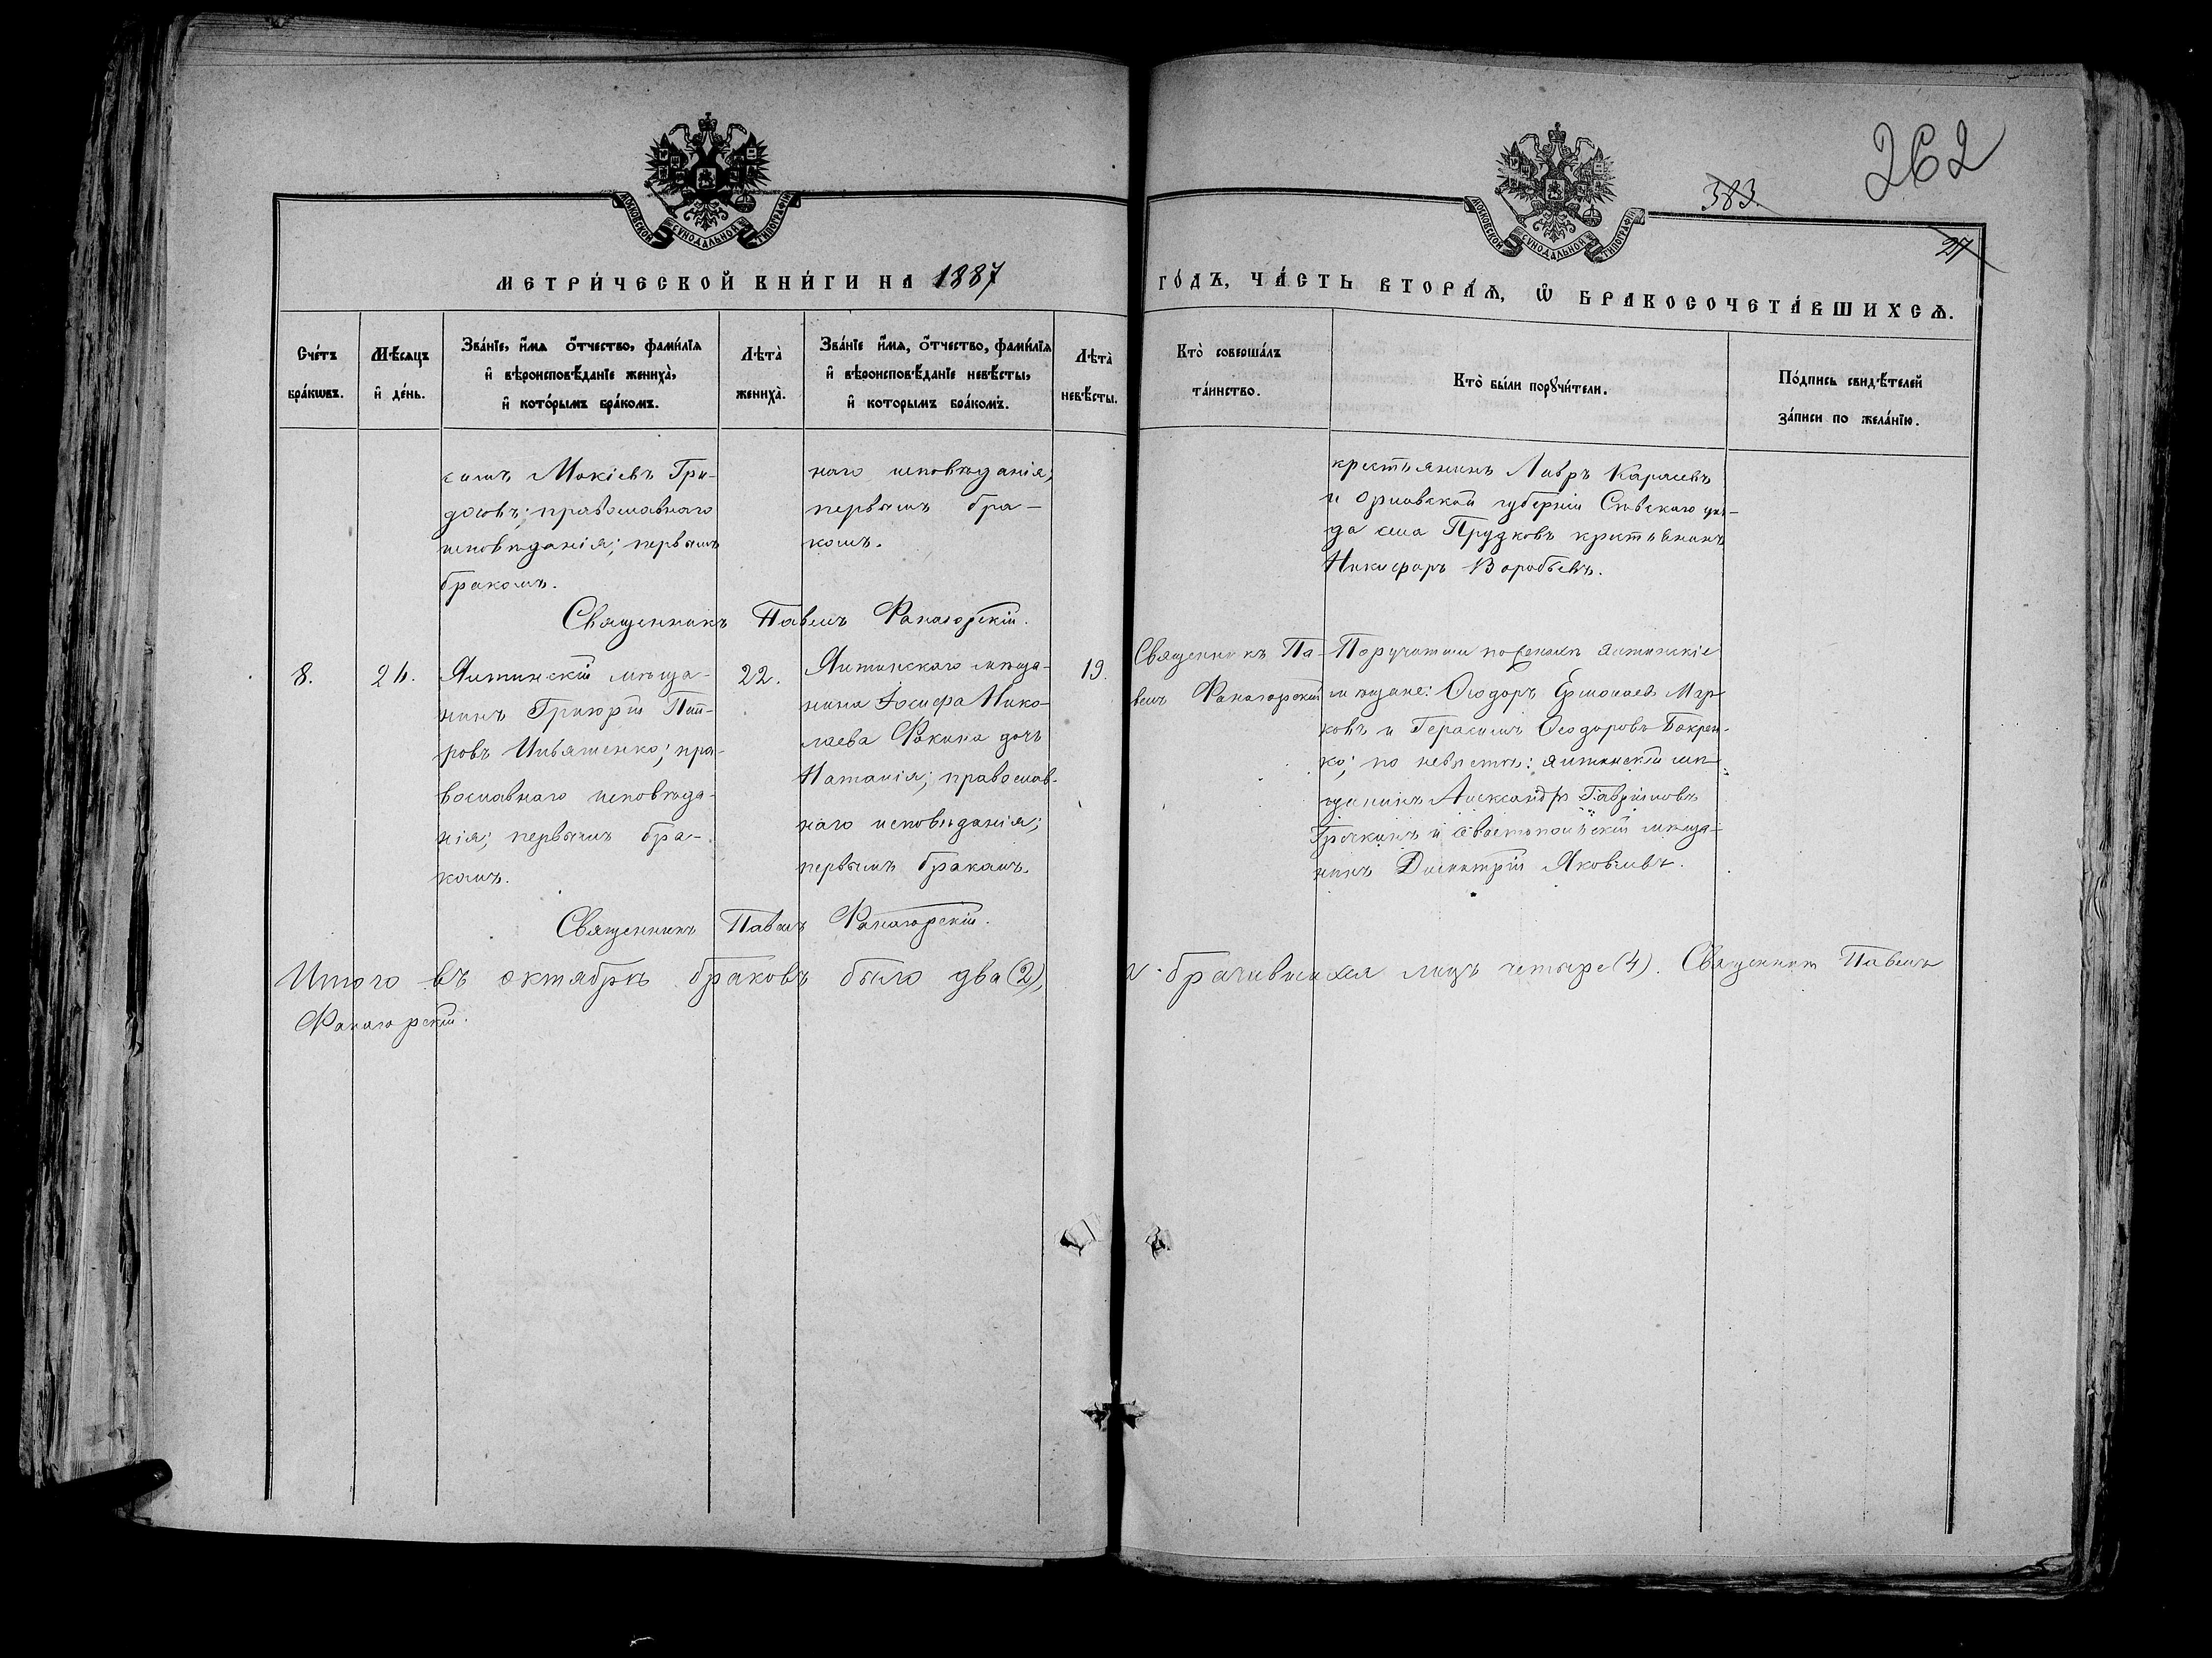 262
383.
27
МОСКОВСКОЙ СѴНОДАЛЬНОЙ ТИПОГРАФІИ
МОСКОВСКОЙ СѴНОДАЛЬНОЙ ТИПОГРАФІИ
МЕТРИ́ЧЕСКОЙ КНИ́ГИ НА 1887
ГО́ДЪ, ЧА́СТЬ ВТОРА́Ѧ, Ѡ҆ БРАКОСОЧЕТА́ВШИХСѦ.
Сче́тъ
бра́кѡвъ.
Мѣ́сѧцъ
и҆ де́нь.
Зва́нїе, и҆́мѧ ѻ҆́тчество, фами́лїѧ
и҆ вѣроисповѣ́данїе жениха̀,
и҆ кото́рымъ бра́комъ.
Лѣта̀
жениха̀.
Зва́нїе и҆́мѧ, ѻ҆́тчество, фами́лїѧ
и҆ вѣроисповѣ́данїе невѣ́сты,
и҆ которымъ бра́комъ.
Лѣта̀
невѣ́сты.
Кто̀ соверша́лъ
та́инство.
Кто̀ бы́ли порꙋчи́тели.
По́дпись свидѣ́телей
за́писи по жела́нїю.
симъ Мокіевъ Гри-
довъ; православнаго
исповѣданія; первымъ
бракомъ.
наго исповѣданія;
первымъ бра-
комъ.
крестьянинъ Лавръ Карасевъ
и Орловской губерніи Сѣвскаго уѣз-
да села Прудковъ крестьянинъ
Никифоръ Воробьевъ.
Священникъ Павелъ Фанагорскій.
8.
26.
Ялтинскій мѣща-
нинъ Григорій Пет-
ровъ Ильяшенко; пра-
вославнаго исповѣда-
нія; первымъ бра-
комъ.
22.
Ялтинскаго мѣща-
нина Іосифа Нико-
лаева Фокина дочь
Наталія; православ-
наго исповѣданія;
первымъ бракомъ.
19.
Священникъ Па-
велъ Фанагорскій
Поручители по женихѣ ялтинскіе
мѣщане: Ѳеодоръ Ермолаевъ Мар-
ковъ и Герасимъ Ѳеодоровъ
по невѣстѣ: ялтинскій мѣ-
щанинъ Александръ Гавріиловъ
и севастопольскій мѣща-
нинъ Димитрій Яковлевъ.
Священникъ Павелъ Фанагорскій.
Итого въ октябрѣ браковъ было два (2),
а брачившихся лицъ четыре (4). Священникъ Павелъ
Фанагорскій.